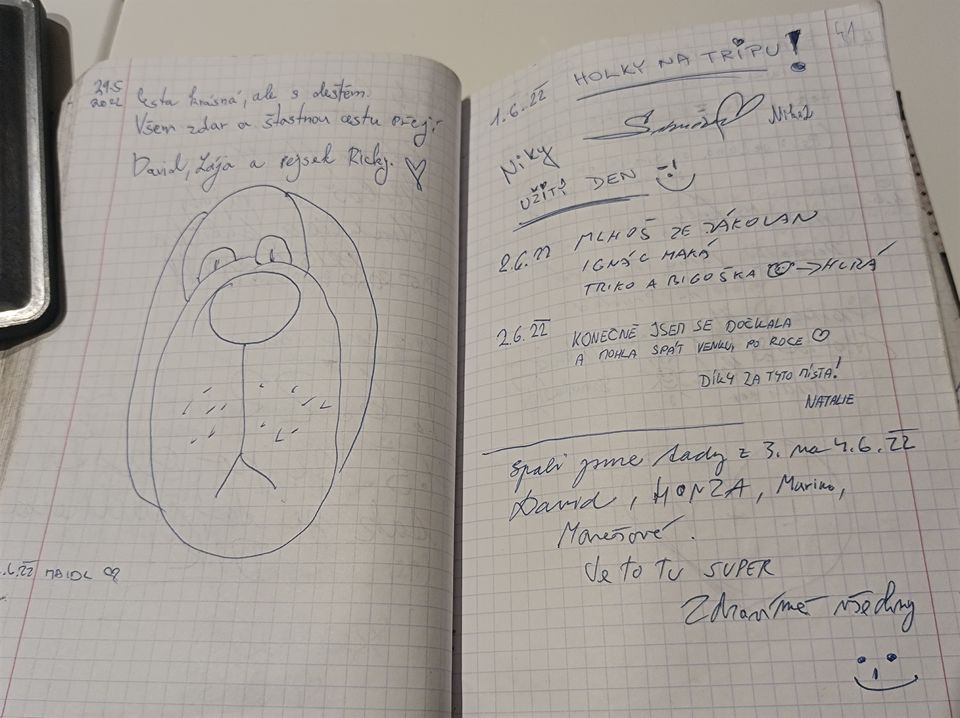 29.5
2022
Cesta krásná, ale s deštěm.
Všem zdar a šťastnou cestu přeji
David, Zája a rejsek Ricky. ♡
.6.22
41
1.6.22 HOLKY NA TRIPU!
Niky
UŽITÝ DEN
2.6.22 MLHOŠ ZE ZÁKOLAN
IGNÁC MAKÁ
TRIKO A BIGOŠKA → HURÁ
2.6.22 KONEČNĚ JSEM SE DOČKALA
A MOHLA SPÁT VENKU, PO ROCE ♡
DÍKY ZA TYTO MÍSTA!
NATALIE
Spali jsme tady z 3. na 4.6.22
David, HONZA, 
Je to tu SUPER
Zdravíme všechny